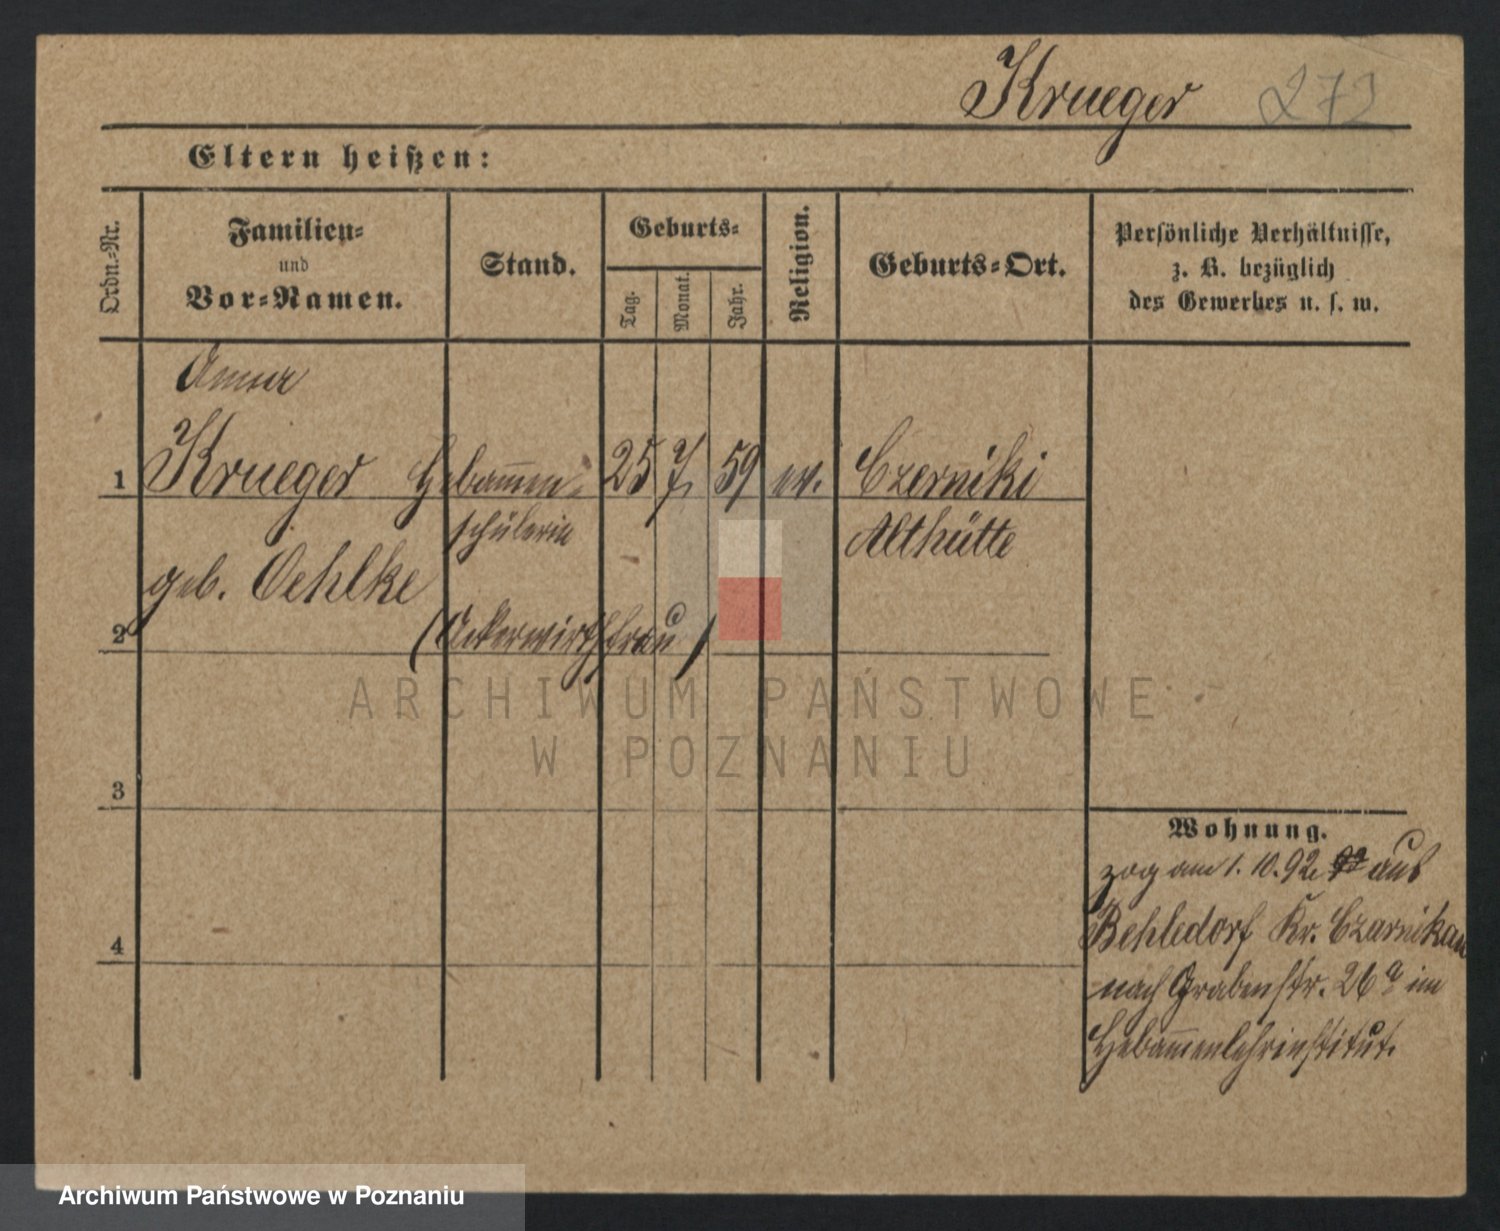 Krueger 273
Eltern heißen:
Ordn.-Nr.
Familien-
und
Vor-Namen.
Stand.
Geburts-
Tag.
Monat.
Jahr.
Religion.
Geburts-Ort.
Persönliche Verhältnisse,
z. B. bezüglich
des Gewerbes u. s. w.
Anna
1 Krueger Hebam̅en- 25 7. 59 ev. Czerniki
schülerin Althütte
geb. Oehlke
2 (Ackerwirthfrau)
ARCHIWUM PAŃSTWOWE
W POZNANIU
3
Wohnung.
zog am 1. 10. 92 aus
Behledorf Kr. Czarnikau
4
nach Grabenstr. 26a im
Hebam̅enlehrinstitut.
Archiwum Państwowe w Poznaniu